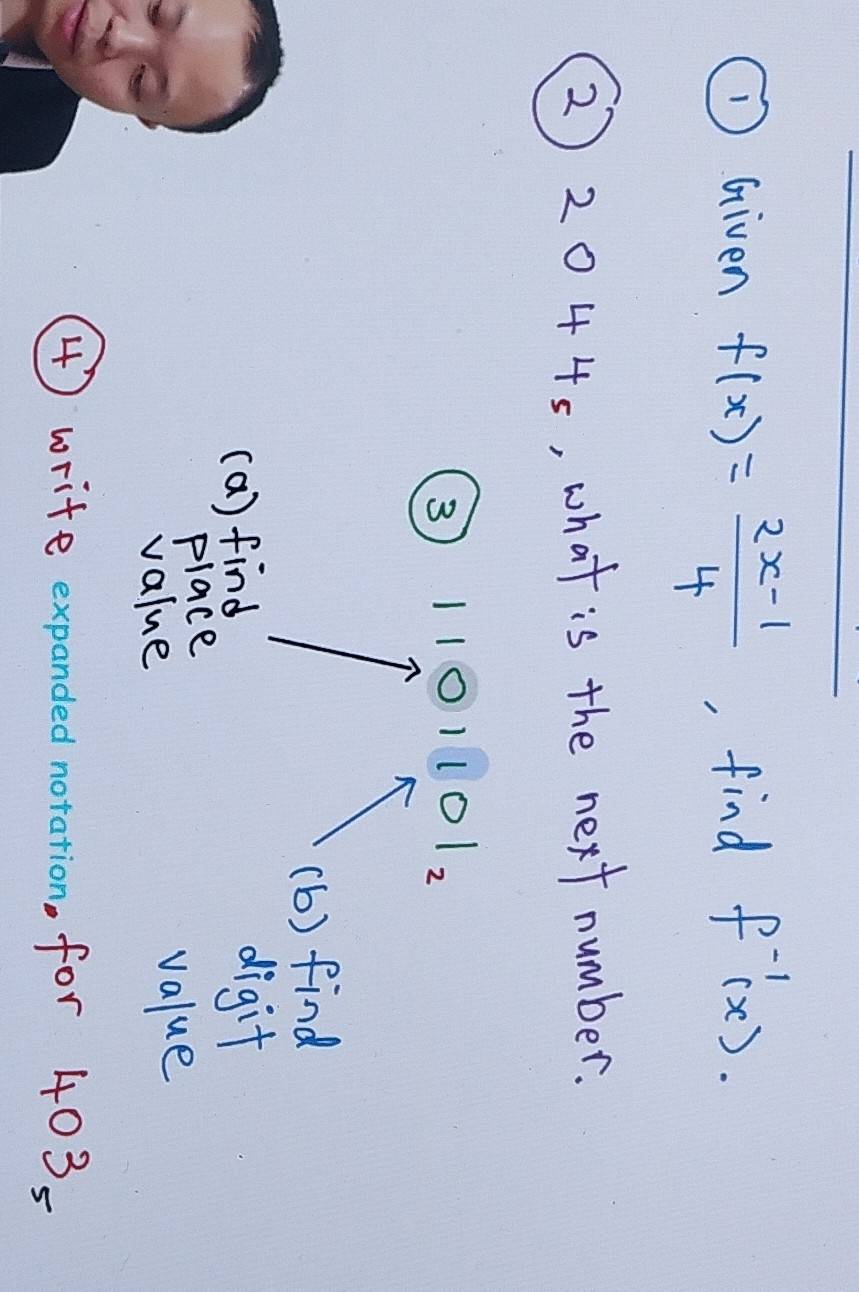 ① Given f(x) = (2x-1)/4 , find f⁻¹(x).
② 2044₅, what is the next number.
③ 1101101₂
(a) find
place
value
(b) find
digit
value
④ write expanded notation. for 403₅